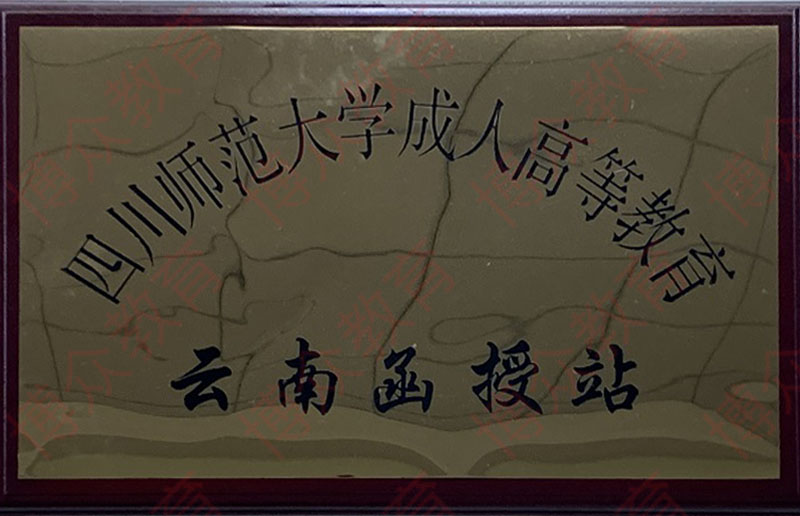 四川师范大学成人高等教育
云南函授站
博众教育